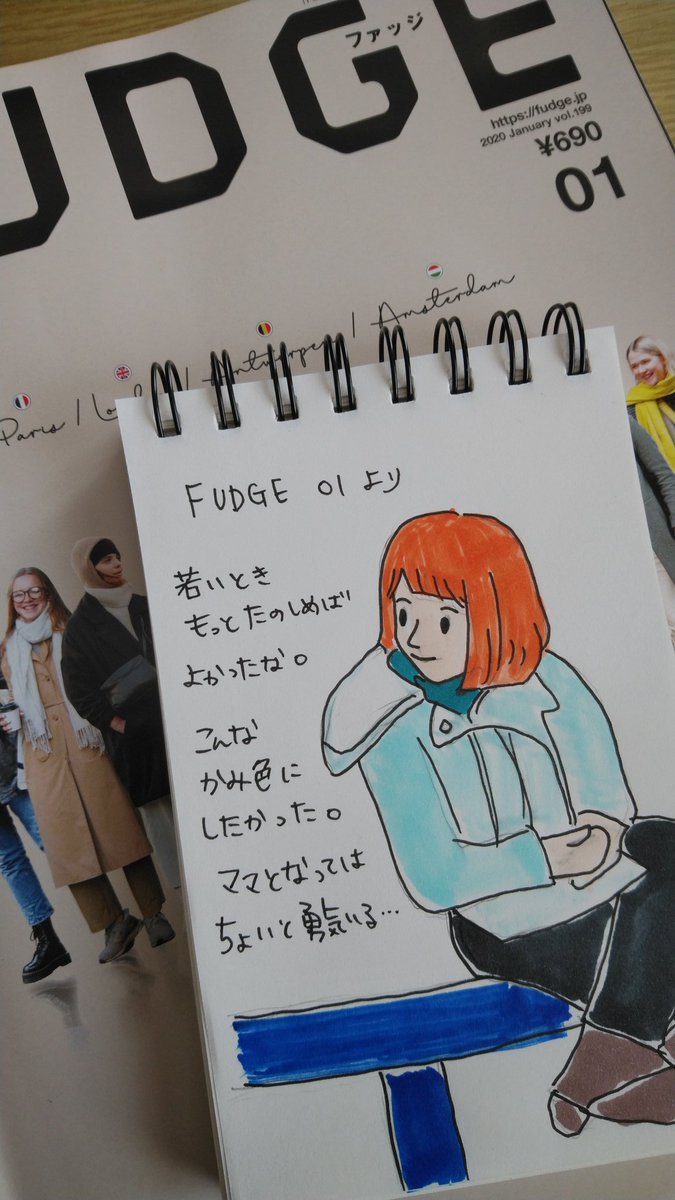 UDGE
ファッジ
https://fudge.jp
2020 January vol.199
¥690
01
Paris / Lond / Antwerpen / Amsterdam
FUDGE 01 より
若いとき
もっとたのしめば
よかったな。
こんな
かみ色に
したかった。
ママとなっては
ちょいと勇気いる…